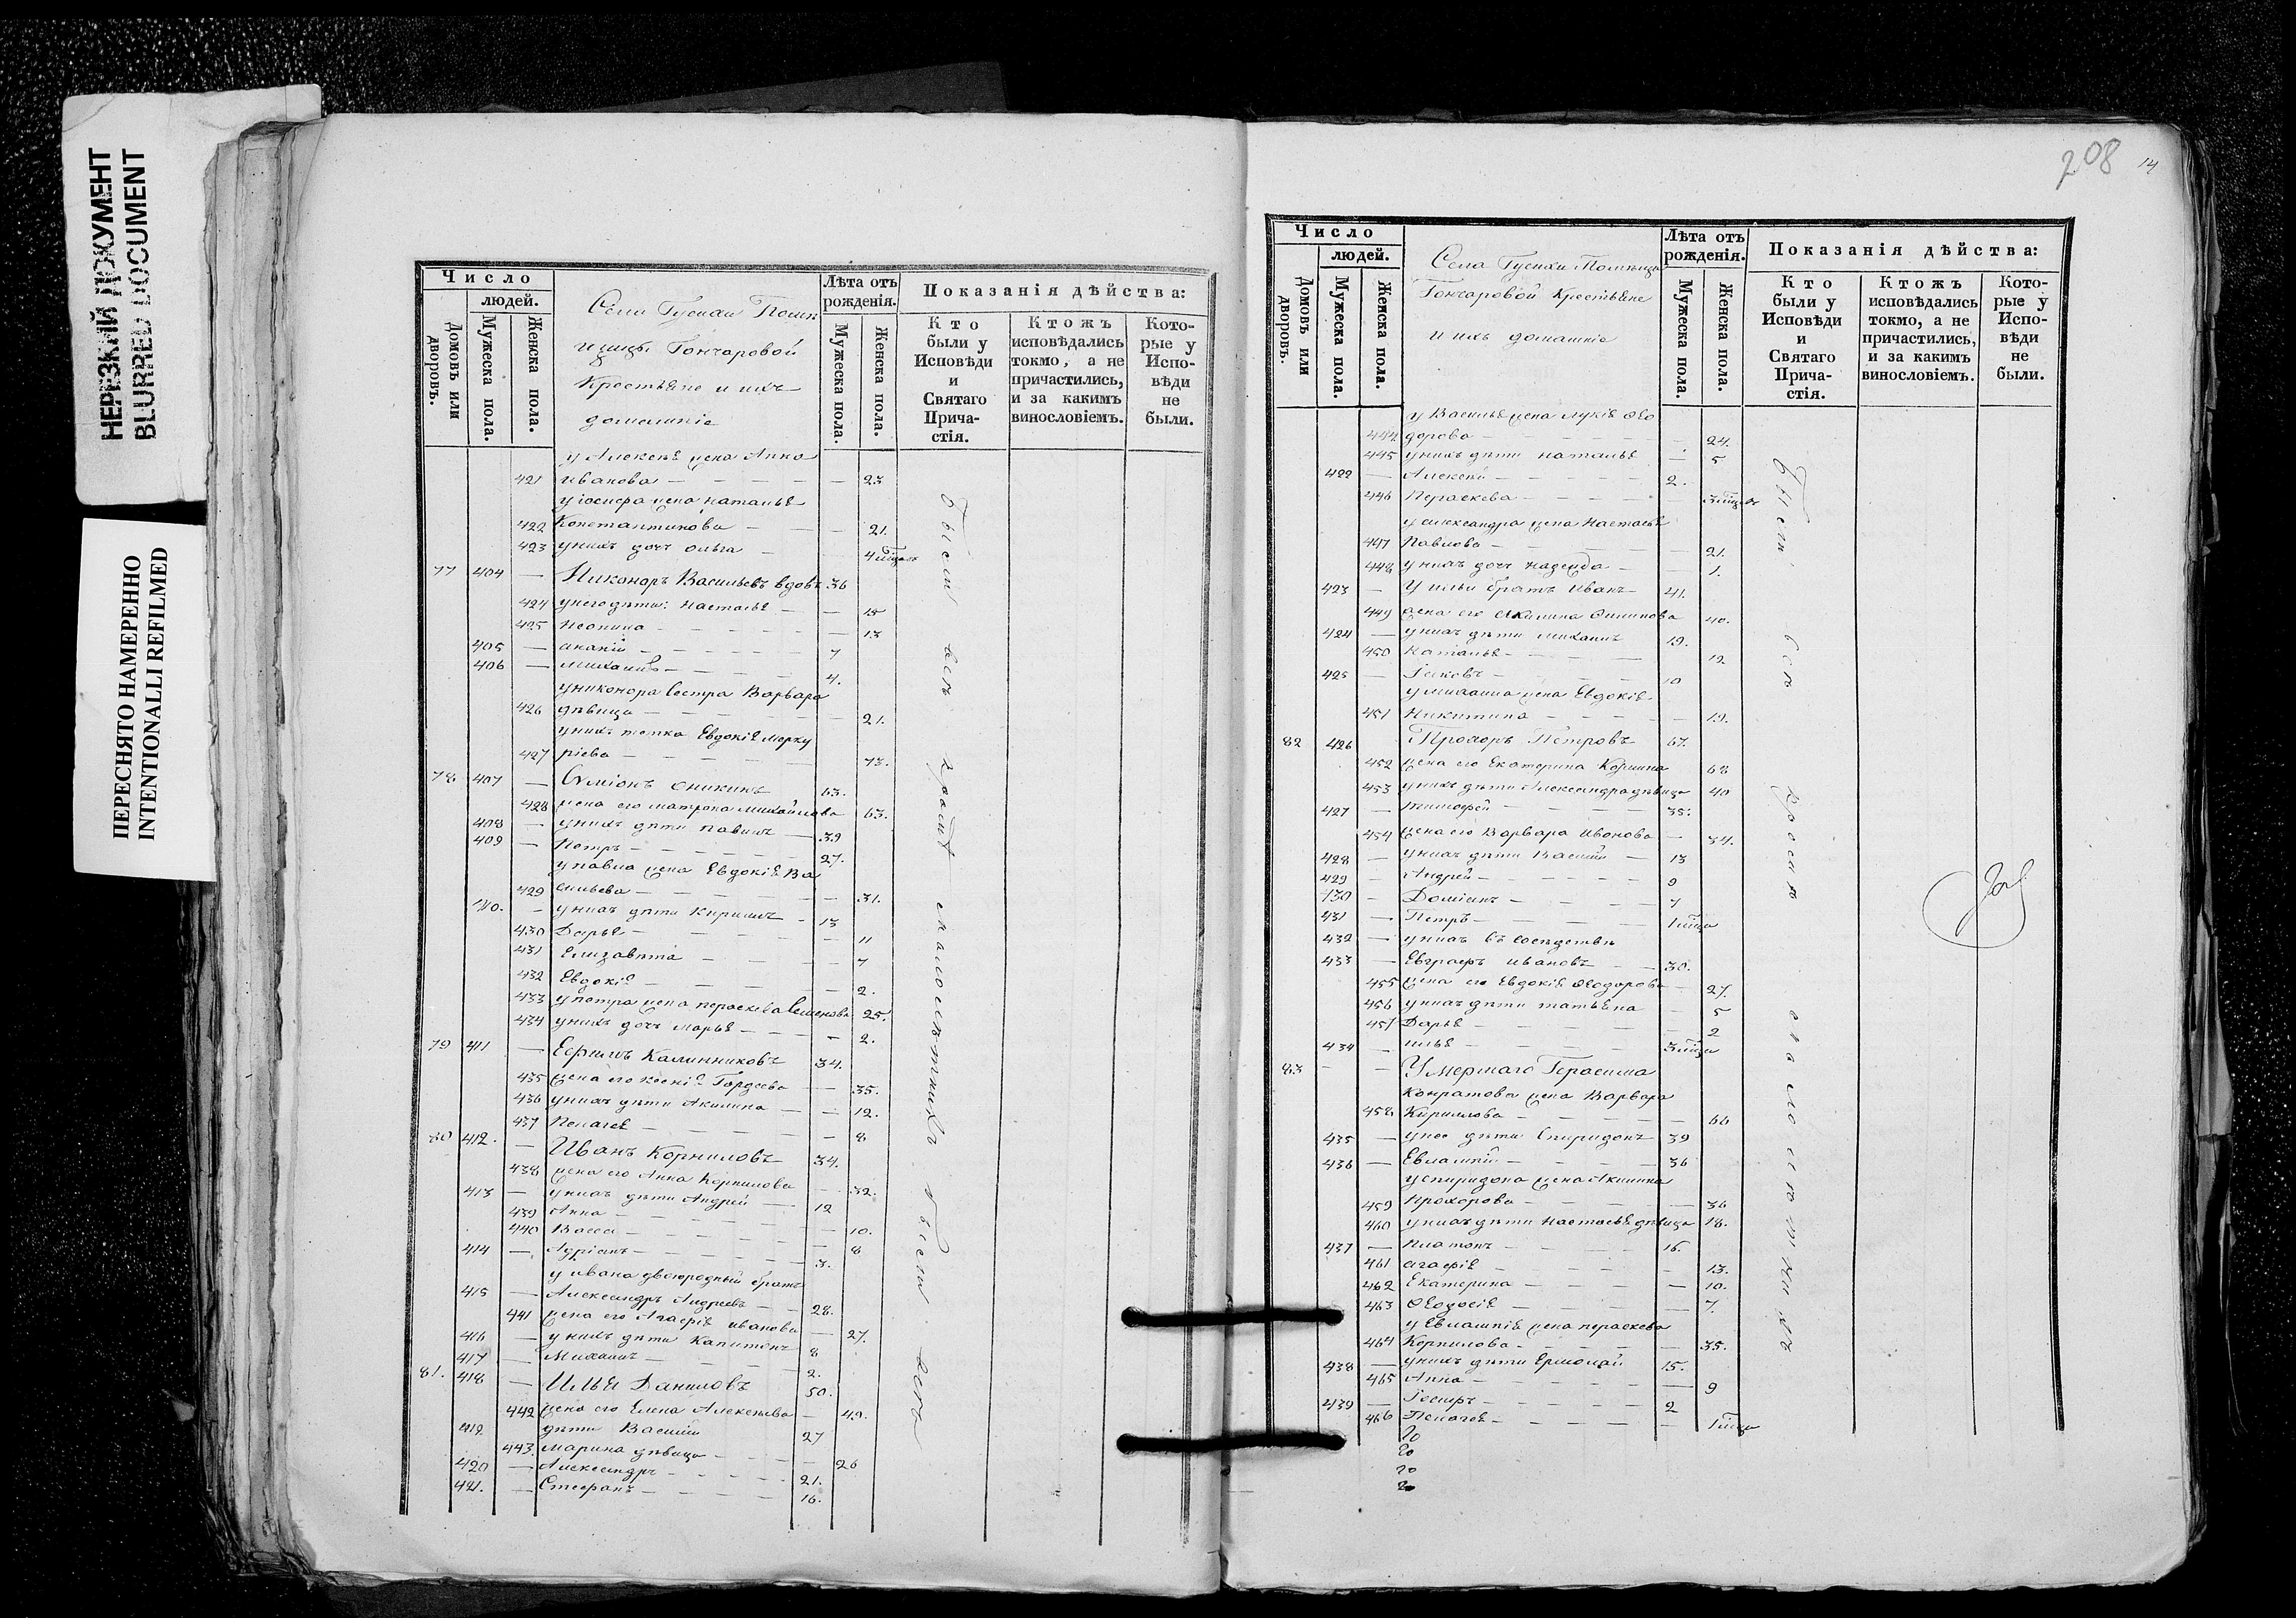 НЕРЕЗКИЙ ДОКУМЕНТ
BLURRED DOCUMENT
ПЕРЕСНЯТО НАМЕРЕННО
INTENTIONALLI REFILMED
Число
людей.
Домовъ или дворовъ.
Мужеска пола.
Женска пола.
Села Гусихи Помѣ
щицы Гончаровой
Крестьяне и ихъ
домашніе
Лѣта отъ рожденія.
Мужеска пола.
Женска пола.
Показанія дѣйства:
Кто были у Исповѣди и Святаго Причастія.
Ктожъ исповѣдались токмо, а не причастились, и за какимъ винословіемъ.
Которые у Исповѣди не были.
у Алексѣя жена Анна
421 Иванова — — 23
у Іосифа жена Наталья
422 Константинова — — 21.
423 у нихъ дочь Ольга — 4
77 404 — Никоноръ Васильевъ вдовъ 36
424 у него дѣти: Настасья — — 15
425 Неонила — — 13
405 — Ананій — 7
406 — Михаилъ — 4.
у Никонора сестра Варвара
426 дѣвица — — 21.
у нихъ тетка Евдокія Мерку
427 ріева — — 73.
78 407 — Симіонъ Оникинъ 63.
428 жена его Матрона Михайлова 63.
408 — у нихъ дѣти Павилъ — 39
409 — Петръ — 27.
у Павла жена Евдокія Ва
429 сильева — — 31.
410. — у нихъ дѣти Кирилъ — 13
430 Дарья — — 11
431 Елизавета — — 7
432 Евдокія — — 2.
433 у Петра жена Параскева Семенова 25.
434 у нихъ дочь Марья — — 2.
79 411 — Ефимъ Калинниковъ 34.
435 жена его Ксенія Гордеева — 35.
436 у нихъ дѣти Акилина — — 12.
437 Пелагея — — 8
80 412. — Иванъ Корниловъ 34.
438 жена его Анна Корнилова — 32.
413 — у нихъ дѣти Андрей — 12
439 Анна — — 10.
440 Васса — — 8
414 — Адріанъ — 3.
у Ивана двоюродный братъ
415 — Александръ Андреевъ — 28.
441 жена его Агафія Иванова — 27.
416 — у нихъ дѣти Капитонъ 8
417 — Михаилъ — 2.
81. 418 — Илья Даниловъ 50.
442 жена его Елена Алексѣева — 49.
419 дѣти Василій 27
443. Марина дѣвица — — 26
420 — Александръ — 21.
421. — Стефанъ — 16.
Были всѣ кромѣ малолѣтнихъ
208
14
Число
людей.
Домовъ или дворовъ.
Мужеска пола.
Женска пола.
Села Гусихи Помѣщицы
Гончаровой Крестьяне
и ихъ домашніе
Лѣта отъ рожденія.
Мужеска пола.
Женска пола.
Показанія дѣйства:
Кто были у Исповѣди и Святаго Причастія.
Ктожъ исповѣдались токмо, а не причастились, и за какимъ винословіемъ.
Которые у Исповѣди не были.
у Василья жена Лукія Ѳео
444 дорова — — 24.
445 у нихъ дѣти Наталья — 5
422 — Алексѣй — 2.
446 Параскева — 3
у Александра жена Настасья
447 Павлова — — 21.
448 у нихъ дочь Надежда — — 1.
423 — У Ильи братъ Иванъ 41.
449 жена его Акилина 40.
424 — у нихъ дѣти Михаилъ 19.
450 Наталья — 12
425 — Іаковъ — 10
у Михаила жена Евдокія
451 Никитина — — 19.
82 426 Прохоръ Петровъ 67.
452 жена его Екатерина 68
453 у нихъ дѣти Александра дѣвица 40
427 — Тимофей — 35.
454 жена его Варвара Иванова — 34.
428 — у нихъ дѣти Василій — 13
429 — Андрей — 9
430 — Доміанъ — 7
431 — Петръ — 1
432 — у нихъ въ сосѣдствѣ
433 — Евграфъ Ивановъ — 30.
455 жена его Евдокія Ѳеодорова — 27.
456 у нихъ дѣти Татьяна — 5
457 Дарья — 2
434 — Илья — 3
83 — — Умершаго Герасима
Кондратова жена Варвара
458 Кирилова — — 66
435 — у нее дѣти Спиридонъ 39
436 — Евлампій — 36
у Спиридона жена Акилина
459 Прохорова — — 36
460 у нихъ дѣти Настасья дѣвица 18.
437 — Платонъ — 16.
461 Агафія — — 13.
462 Екатерина — — 10.
463 Ѳеодосія — — 7.
у Евлампія жена Параскева
464 Корнилова — — 35.
438 — у нихъ дѣти Ермолай 15.
465 Анна — — 9
439 — Петръ — 2
466 Пелагея — — 1
Были всѣ кромѣ малолѣтнихъ